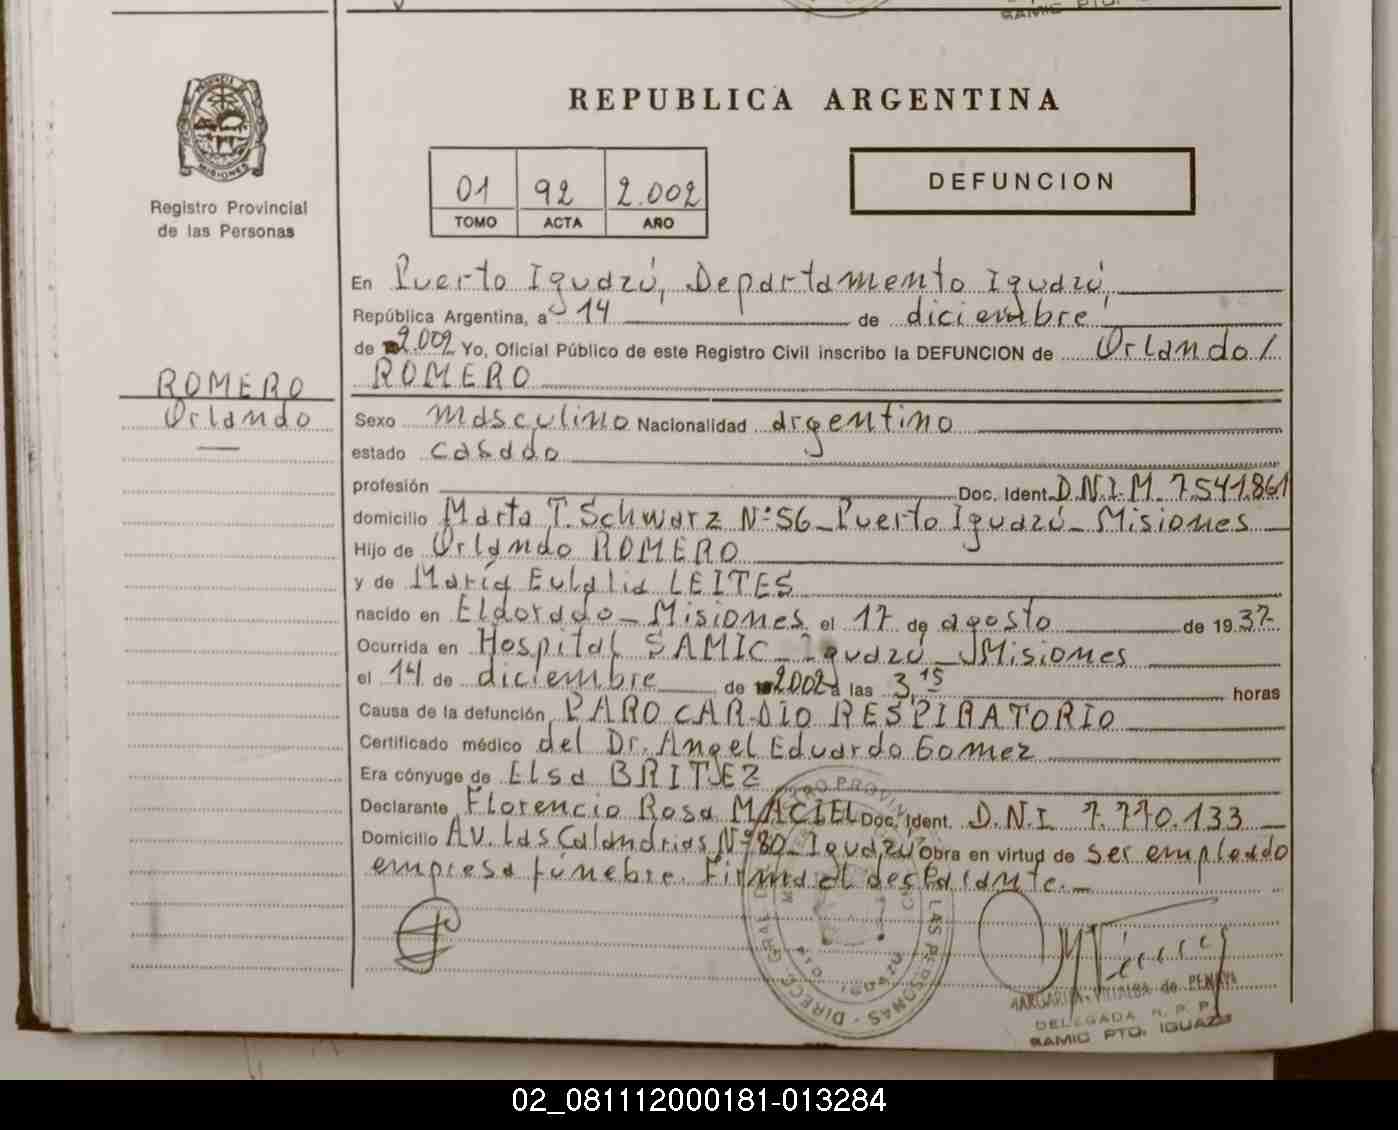 SAMIC PTO.
PROVINCIA DE
MISIONES
Registro Provincial
de las Personas
REPUBLICA ARGENTINA
01 92 2.002
TOMO ACTA AÑO
DEFUNCION
En Puerto Iguazú, Departamento Iguazú,
República Argentina, a 14 de diciembre
de 2.002 Yo, Oficial Público de este Registro Civil inscribo la DEFUNCION de Orlando/
ROMERO
ROMERO
Orlando
Sexo masculino Nacionalidad argentino
estado casado
profesión Doc. Ident. D.N.I.M. 7.541.861
domicilio Marta T. Schwarz N° 56 - Puerto Iguazú - Misiones
Hijo de Orlando ROMERO
y de María Eulalia LEITES
nacido en Eldorado - Misiones el 17 de agosto de 1937
Ocurrida en Hospital SAMIC - Iguazú - Misiones
el 14 de diciembre de 2002 a las 3,15 horas
Causa de la defunción PARO CARDIO RESPIRATORIO
Certificado médico del Dr. Angel Eduardo Gomez
Era cónyuge de Elsa BRITEZ
Declarante Florencio Rosa MACIEL Doc. Ident. D.N.I 7.770.133
Domicilio Av. Las Calandrias N° 80 - Iguazú Obra en virtud de ser empleado
empresa fúnebre. Firma el declarante.
MARGARITA VILLALBA de PENAYO
DELEGADA R. P. P.
SAMIC PTO. IGUAZU
02_081112000181-013284